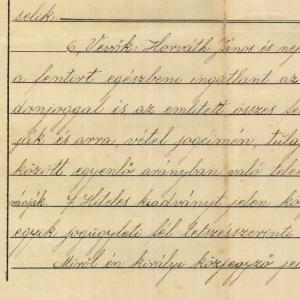 selik.
6, Vevők: Horváth János és nej
a fentirt egészbeni ingatlant az
donjoggal és az emlitett összes fe
ják és arra, vétel jogcimén, tula
között, egyenlő arányban való tele
vánják. 7, Hiteles kiadványt jelen kö
egyik jogügyleti fél tetszésszerinti
Miről én királyi közjegyző je